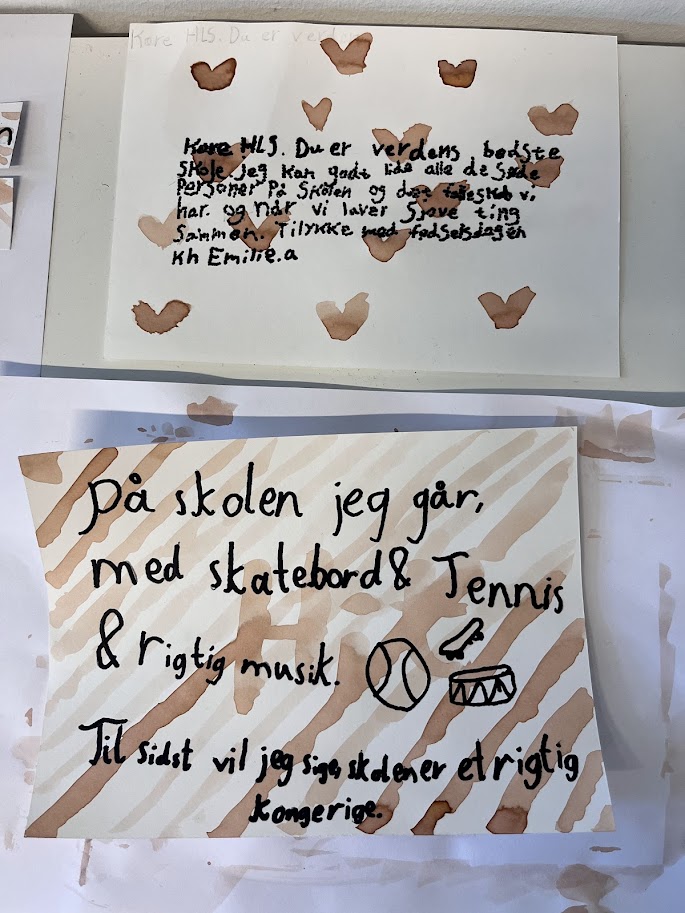 Kære HLS. Du er verden
Kære HLS. Du er verdens bedste
skole jeg kan godt lide alle de søde
Personer på skolen og det fælleskab vi
har. og når vi laver sjove ting
sammen. Tilykke med fødselsdagen
Kh Emilie.a
på skolen jeg går,
med skatebord & Tennis
& rigtig musik.
Til sidst vil jeg sige, skolen er et rigtig
kongerige.